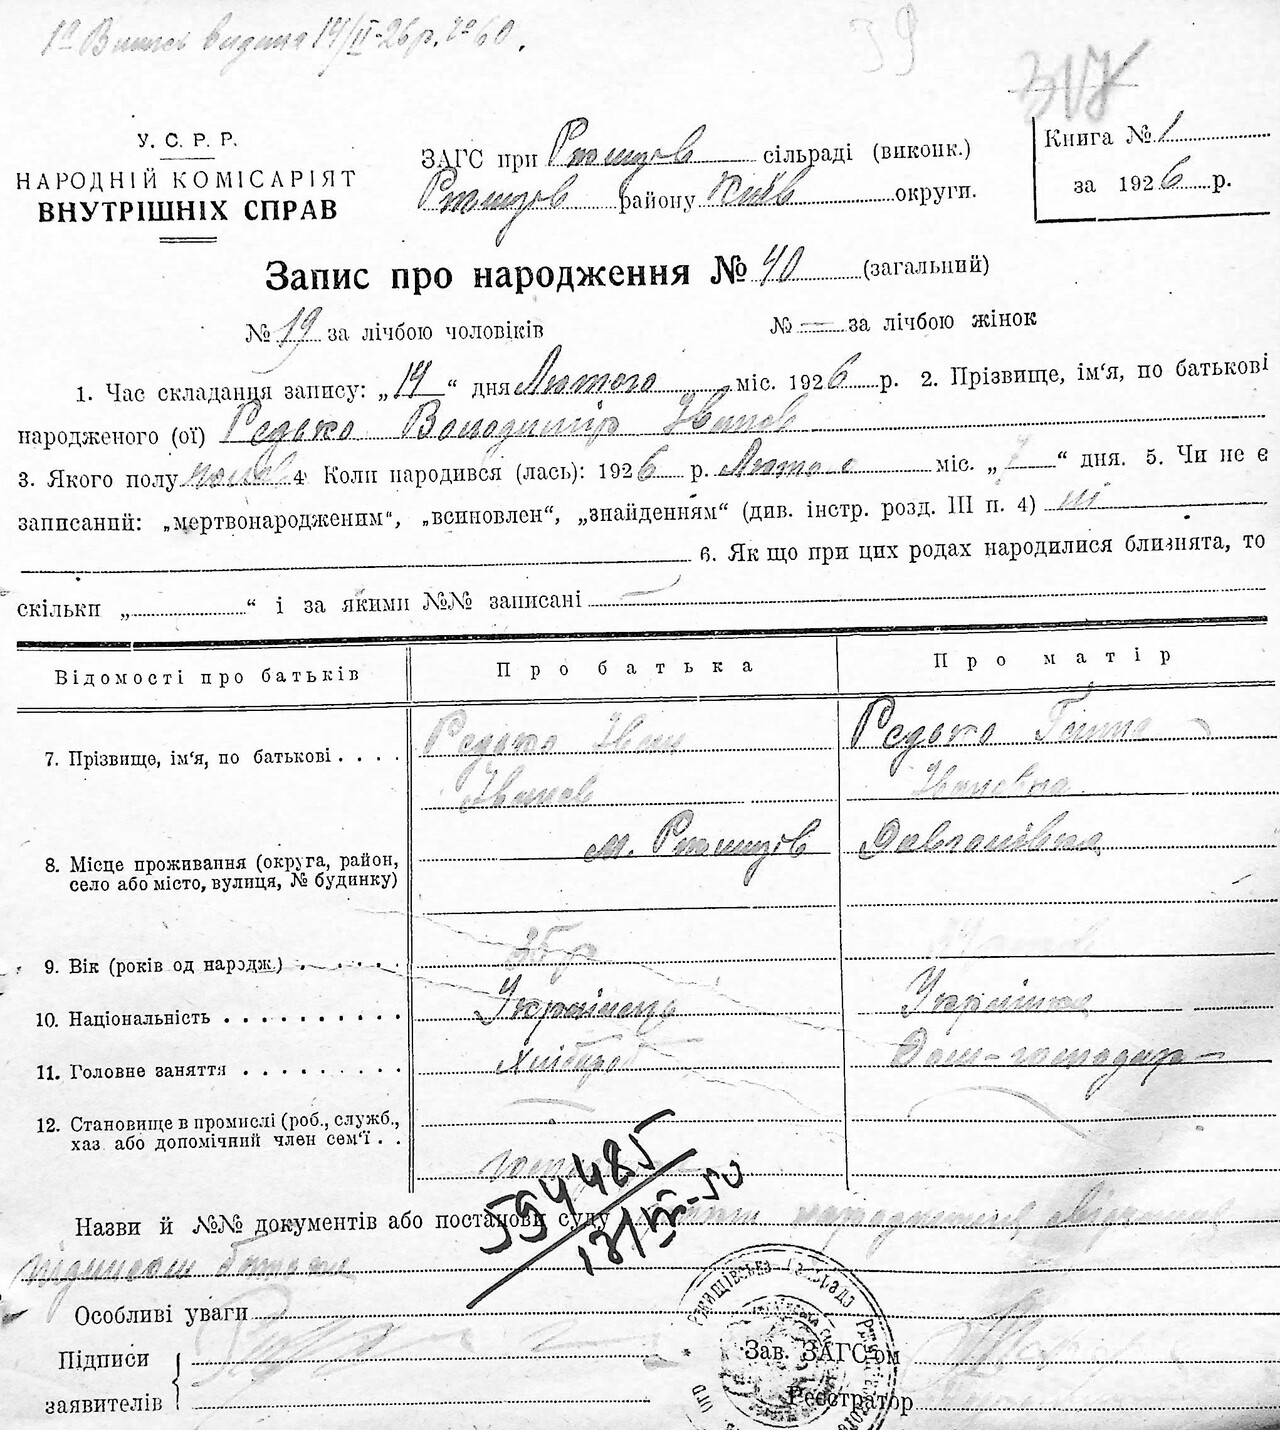 1ª Витяг видана 14/II-26 р. № 60.
39
У. С. Р. Р.
НАРОДНІЙ КОМІСАРІЯТ
ВНУТРІШНІХ СПРАВ
ЗАГС при Ржищов сільраді (виконк.)
Ржищов району Київ округи.
Книга № 1
за 1926 р.
Запис про народження № 40 (загальний)
№ 19 за лічбою чоловіків № — за лічбою жінок
1. Час складання запису: „14“ дня Лютого міс. 1926 р. 2. Прізвище, ім‘я, по батькові
народженого (ої) Редько Володимір Іванов
3. Якого полу чолов 4 Коли народився (лась): 1926 р. Лютого міс. „7“ дня. 5. Чи не є
записаний: „мертвонародженим“, „всиновлен“, „знайденням“ (див. інстр. розд. III п. 4) ні
6. Як що при цих родах народилися близнята, то
скільки „ “ і за якими №№ записані —
Відомості про батьків Про батька Про матір
7. Прізвище, ім‘я, по батькові . . . . Редько Іван Редько Ганна
Іванов Івановна
8. Місце проживання (округа, район, м. Ржищов
село або місто, вулиця, № будинку)
9. Вік (років од народж.) . . . . . . 35 р
10. Національність . . . . . . . . . . Українець Українка
11. Головне заняття . . . . . . . . . Хлібороб Дом-господар-
12. Становище в промислі (роб., служб.,
хаз або допомічний член сем‘ї . .
594485
13/VIII-50
Назви й №№ документів або постанови суду народження
підписом батька
Особливі уваги
Підписи
заявителів
Зав. ЗАГС‘ом
Реєстратор